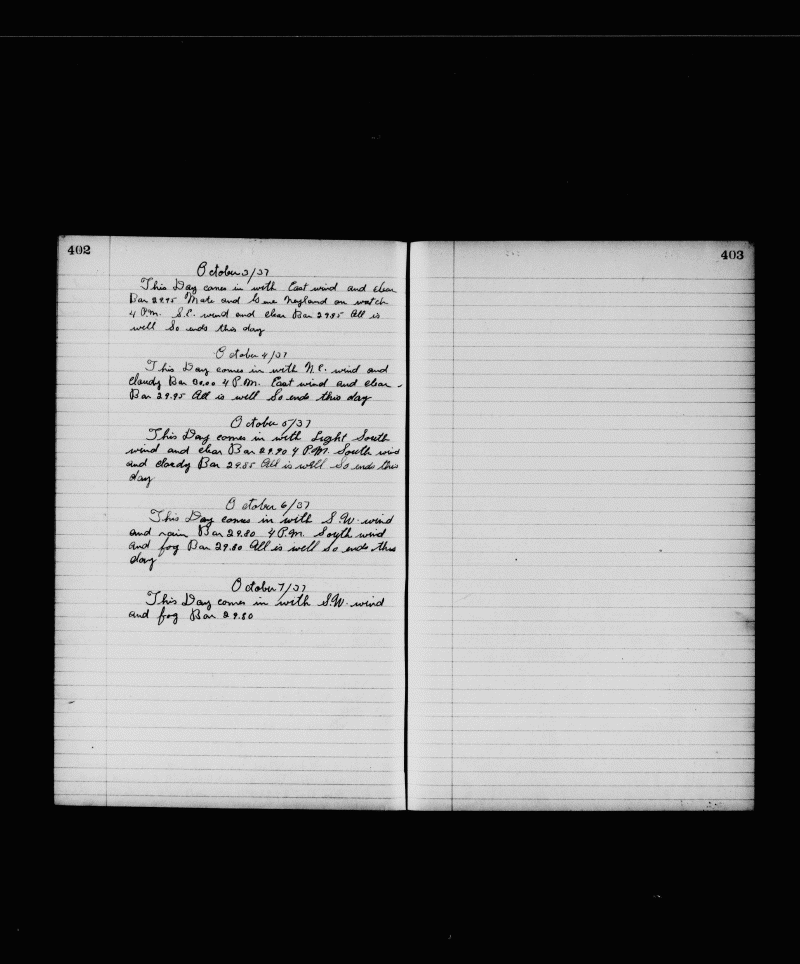 402
October 3/37
This Day comes in with East wind and clear
Bar 29.95 Mate and Gene on watch
4 P.M. S.E. wind and clear Bar 29.85 All is
well So ends this day
October 4/37
This Day comes in with N.E. wind and
cloudy Bar 30.00 4 P.M. East wind and clear
Bar 29.95 All is well So ends this day
October 5/37
This Day comes in with Light South
wind and clear Bar 29.90 4 P.M. South wind
and cloudy Bar 29.85 All is well So ends this
day
October 6/37
This Day comes in with S.W. wind
and rain Bar 29.80 4 P.M. South wind
and fog Bar 29.80 All is well So ends this
day
October 7/37
This Day comes in with S.W. wind
and fog Bar 29.80
403